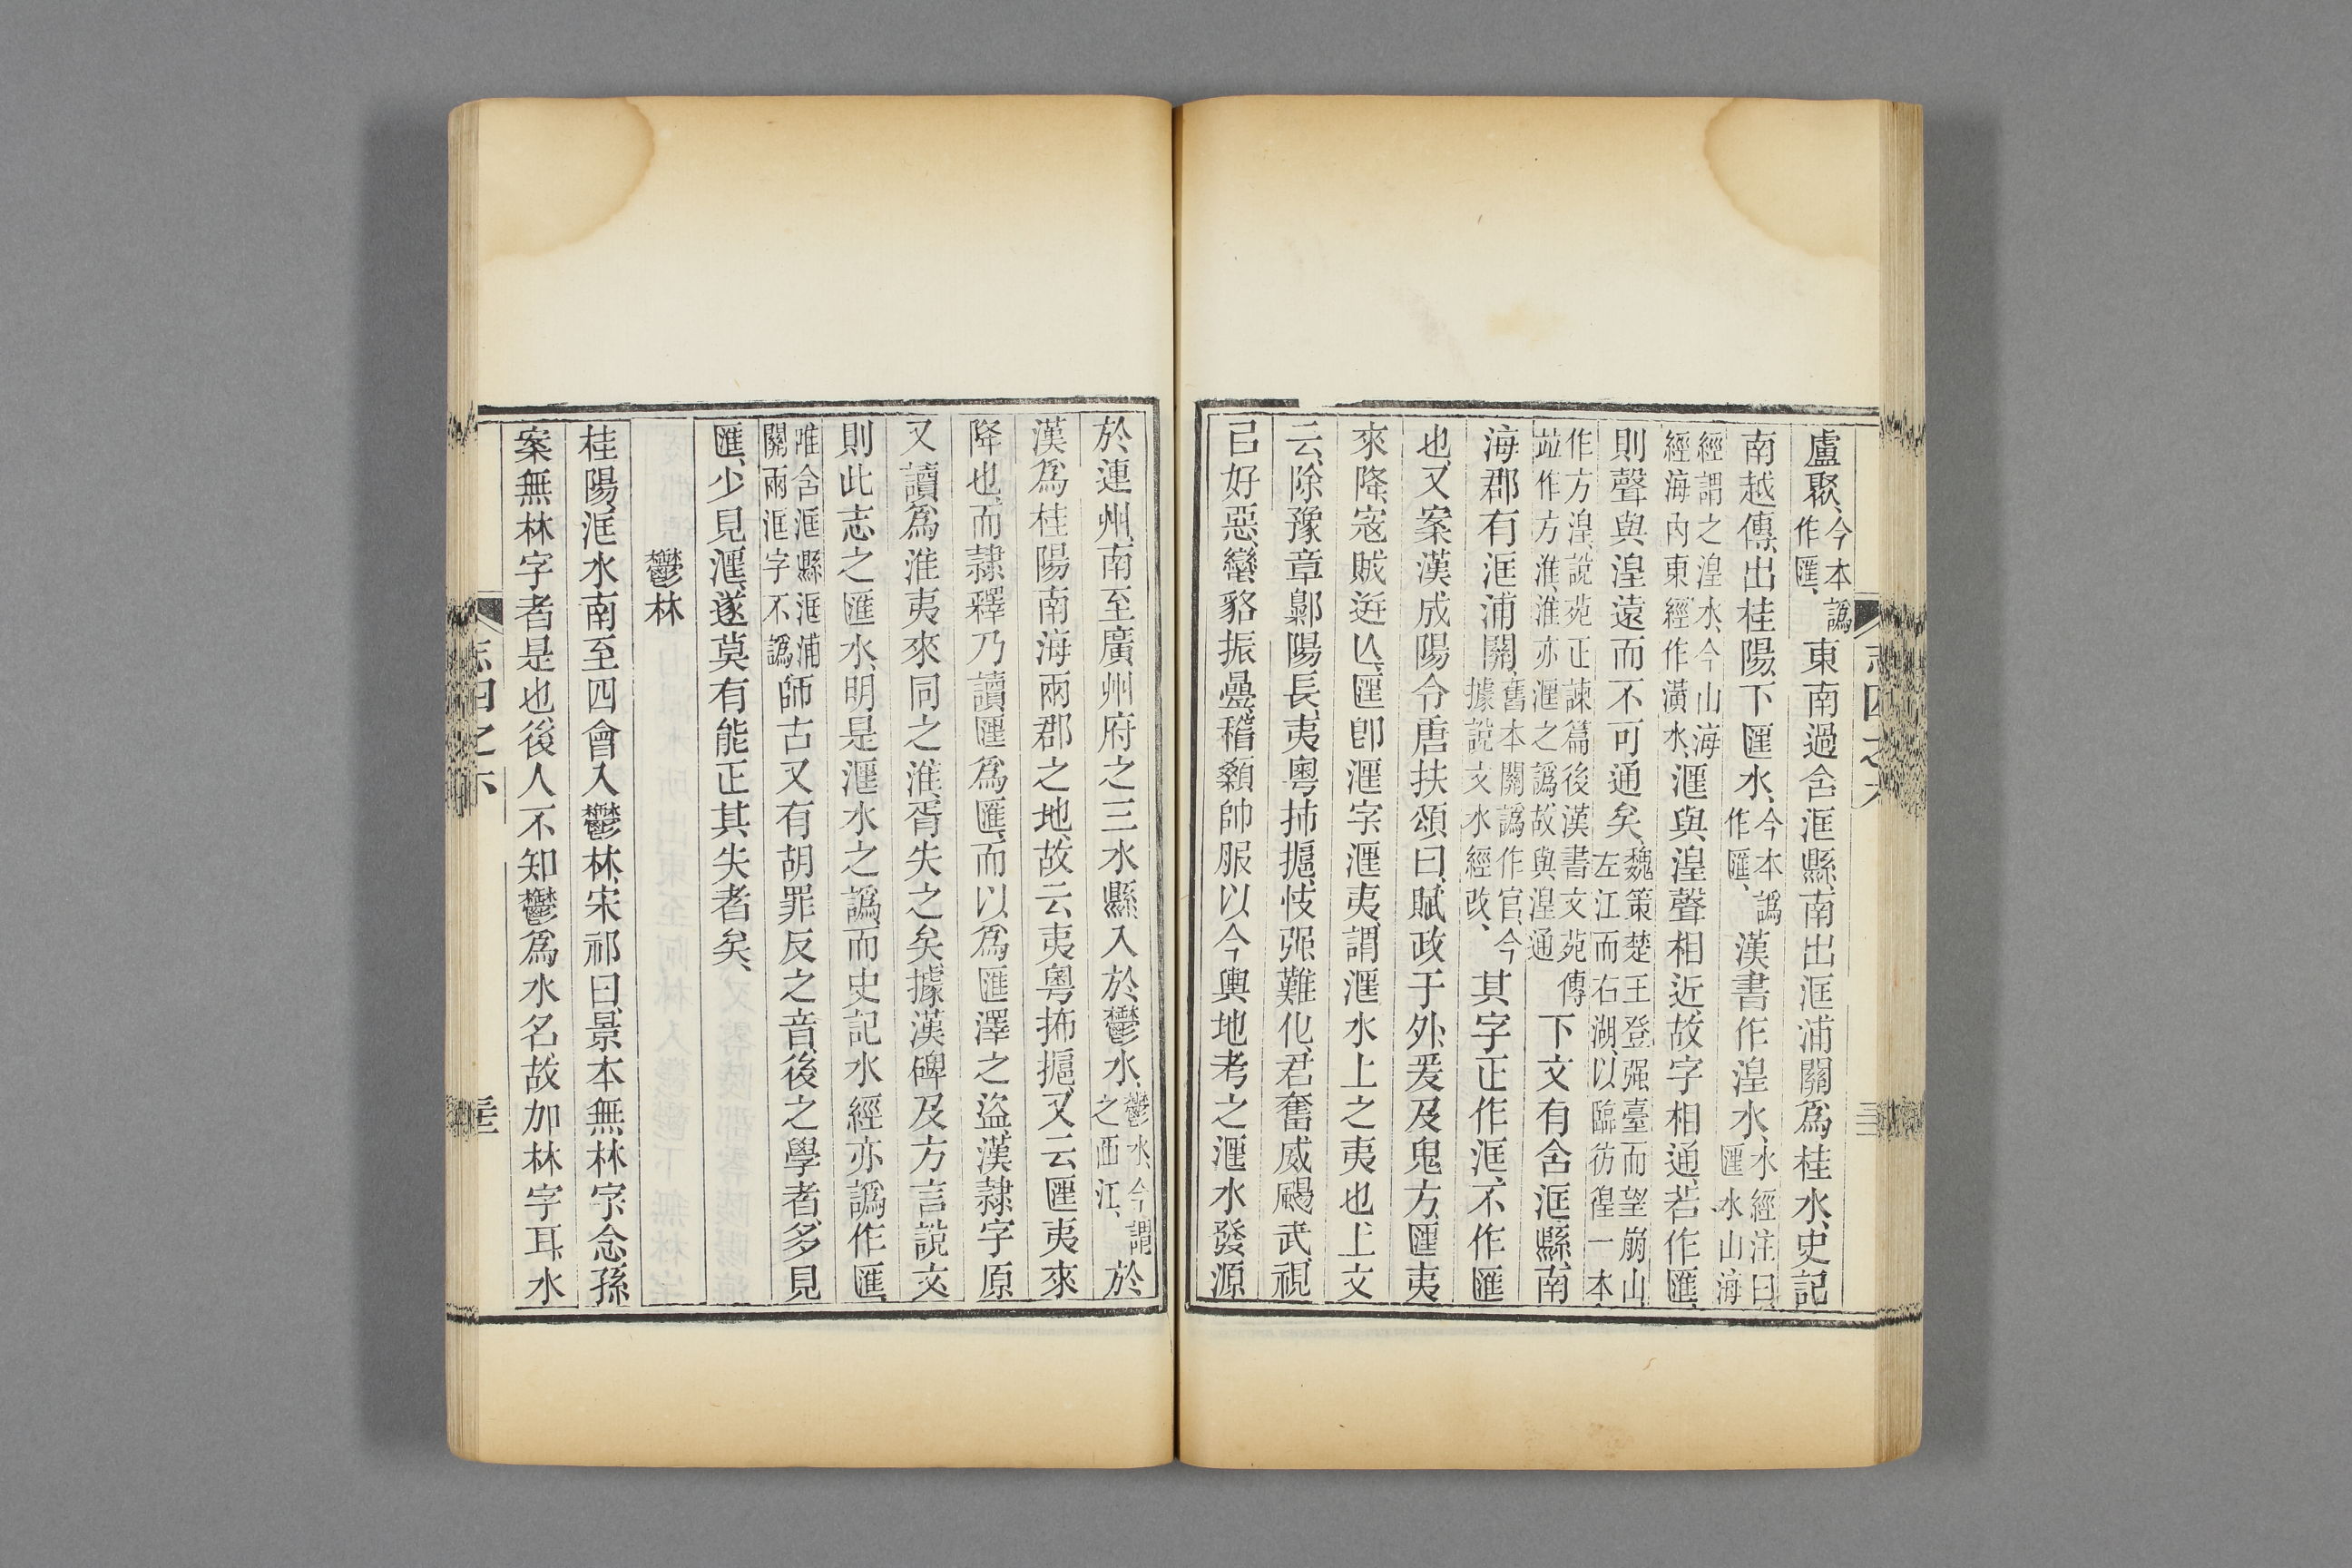 盧聚、今本譌作匯、東南過含洭縣、南出洭浦關爲桂水、史記
南越傳、出桂陽、下滙水、今本譌作匯、漢書作湟水、水經注曰滙水山海
經謂之湟水、今山海經海內東經作潢水、滙與湟聲相近、故字相通、若作匯、
則聲與湟遠而不可通矣、魏策楚王登强臺而望崩山左江而右湖、以臨彷徨一本
作方湟、說苑正諫篇後漢書文苑傳竝作方淮、淮亦滙之譌故與湟通下文有含洭縣、南
海郡有洭浦關、舊本關譌作官、今據說文水經改、其字正作洭、不作匯
也、又案漢成陽令唐扶頌曰、賦政于外、爰及鬼方、匯夷
來降、寇賊迸亾、匯卽滙字、滙夷、謂滙水上之夷也、上文
云、除豫章鄡陽長、夷粵抪㨭、忮强難化、君奮威颺武、視
已好惡、蠻貉振疊、稽顙帥服以、今輿地考之滙水發源
於連州、南至廣州府之三水縣、入於鬱水、鬱水、今謂之西江、於
漢爲桂陽南海兩郡之地、故云、夷粵抪㨭、又云匯夷來
降也、而隸釋乃讀匯爲匯、而以爲匯澤之盜、漢隸字原
又讀爲淮夷來同之淮、胥失之矣、據漢碑及方言說文
則此志之匯水、明是滙水之譌、而史記水經亦譌作匯、
唯含洭縣洭浦關兩洭字不譌師古又有胡罪反之音、後之學者、多見
匯、少見滙、遂莫有能正其失者矣、
鬱林
桂陽、洭水南至四會入鬱林、宋祁曰、景本無林字、念孫
案無林字者是也、後人不知鬱爲水名、故加林字耳、水
志四之六